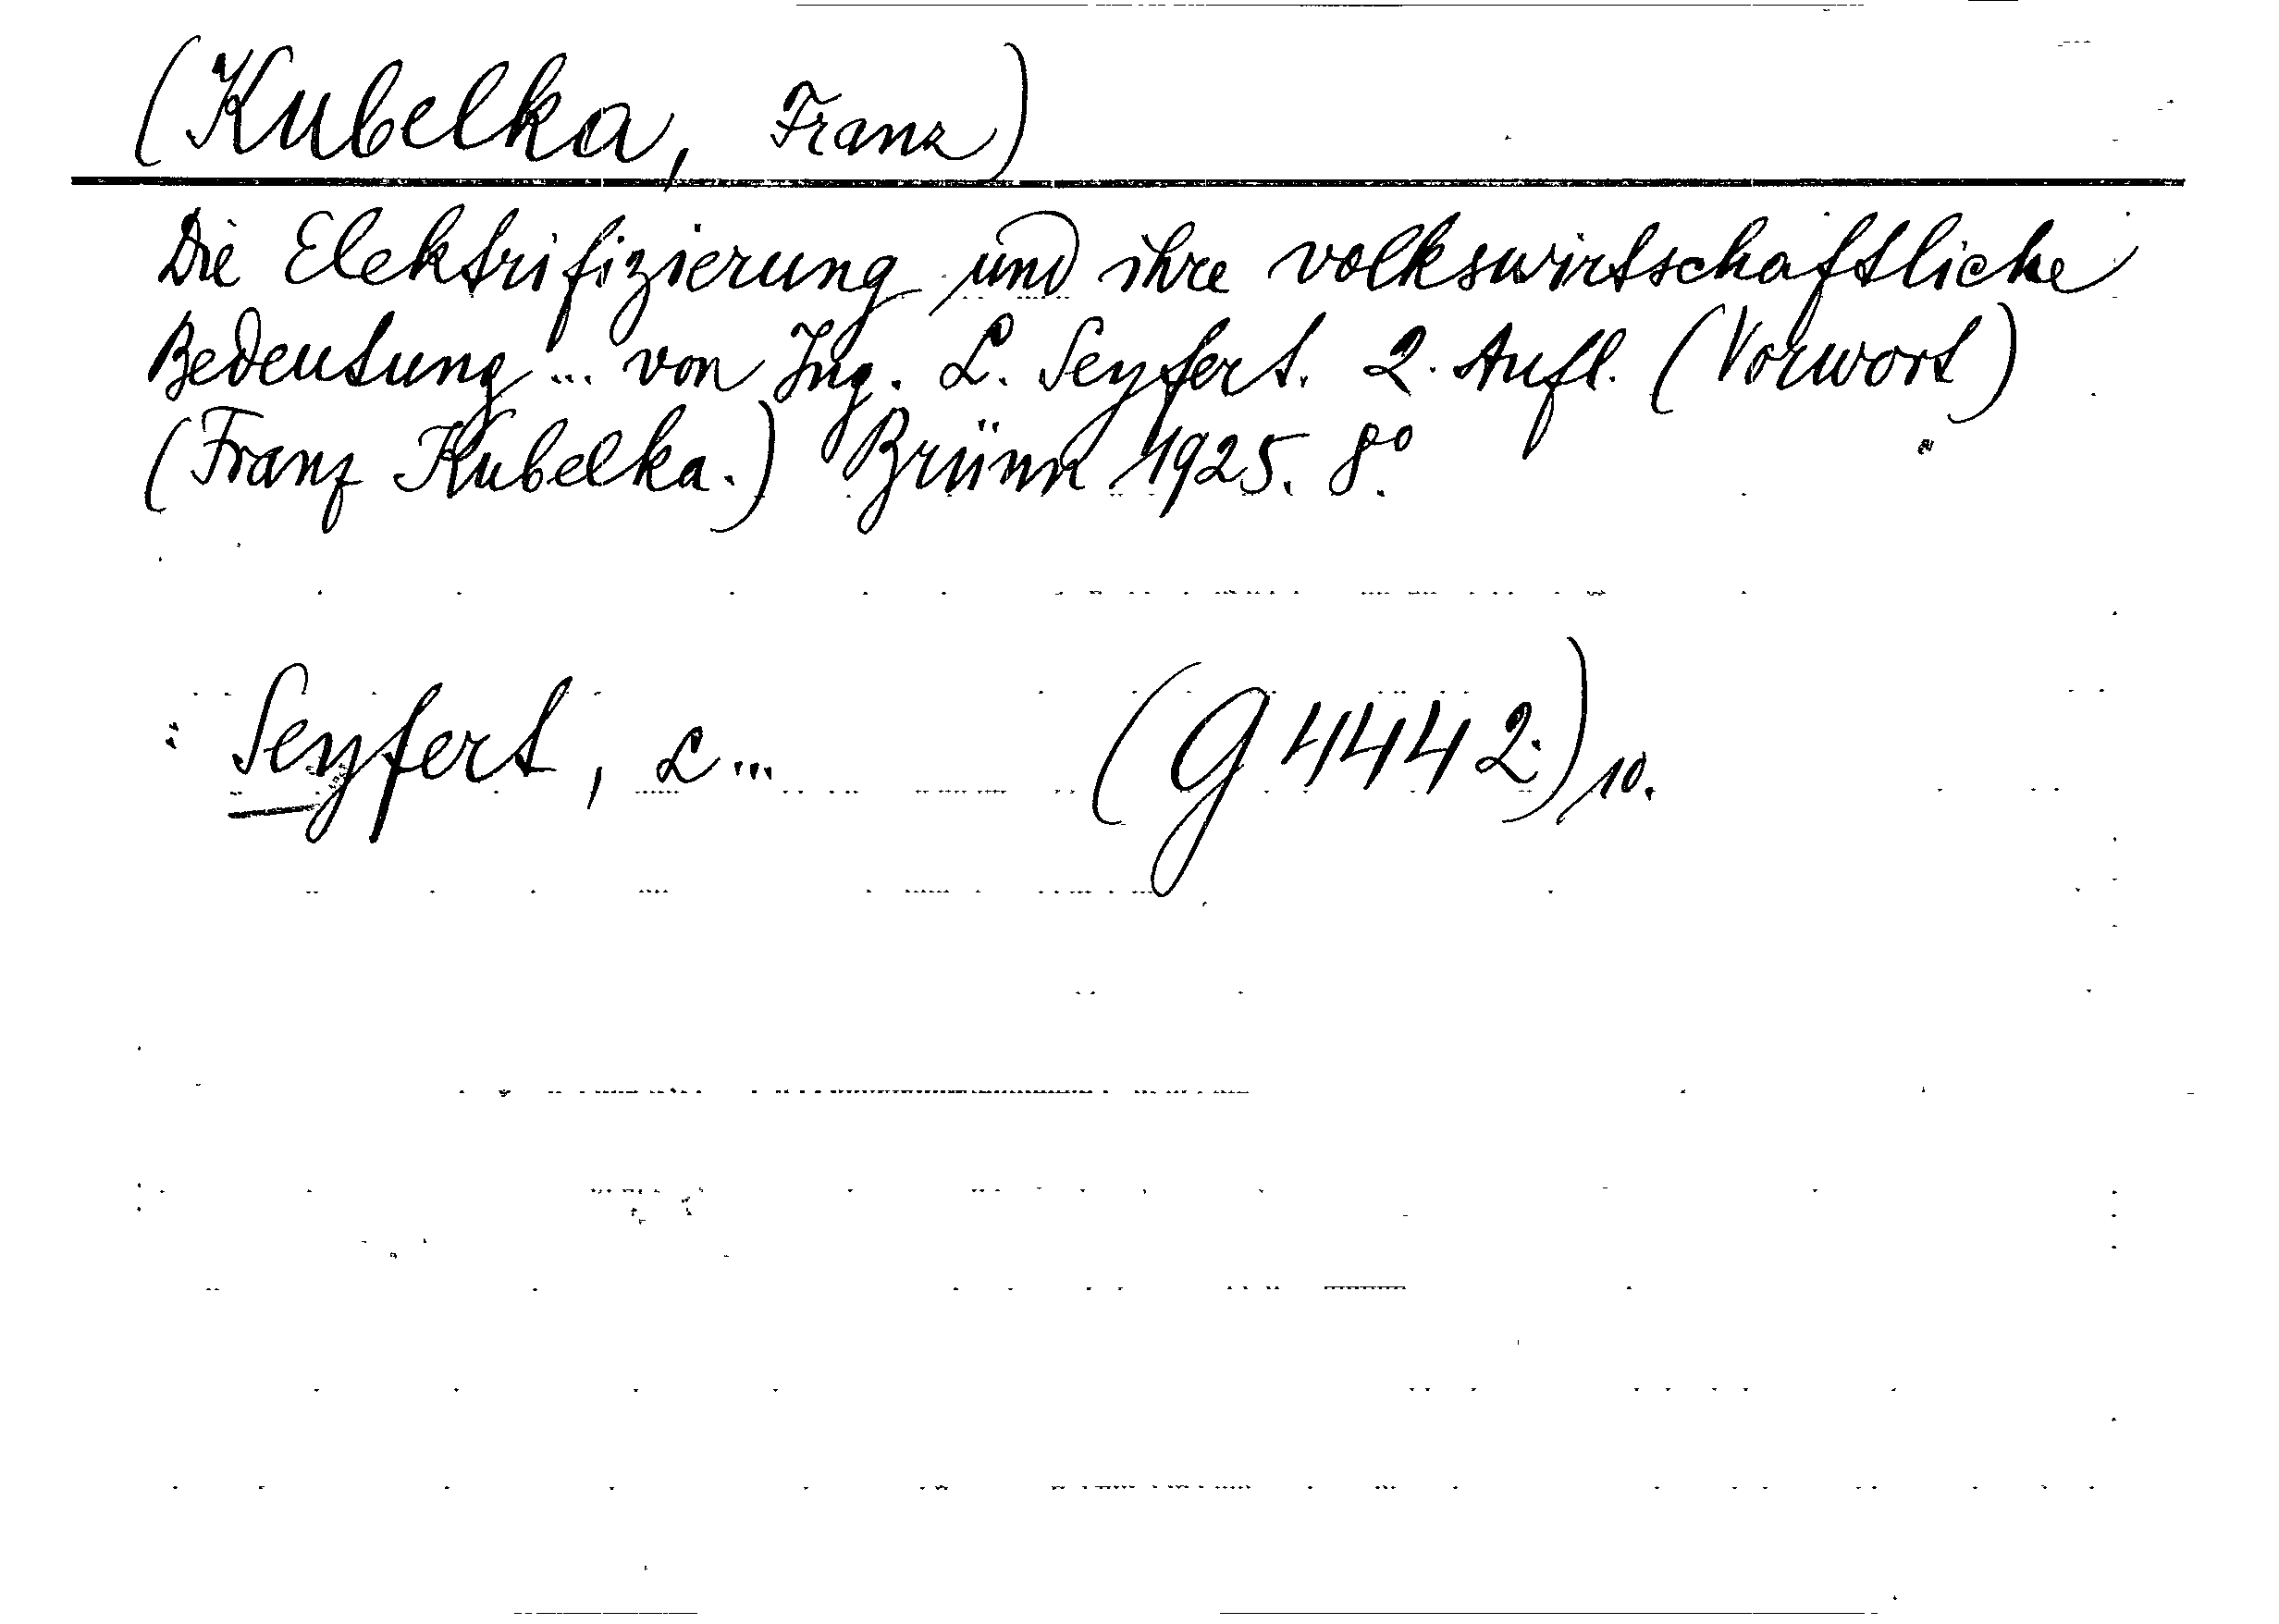 (Kubelka, Franz)
Die Elektrifizierung und ihre volkswirtschaftliche
Bedeutung ... von Ing. L. Seyfert. 2. Aufl. (Vorwort)
(Franz Kubelka.) Brünn 1925. 8°.
: Seyfert, L... (G 4442.) 10.